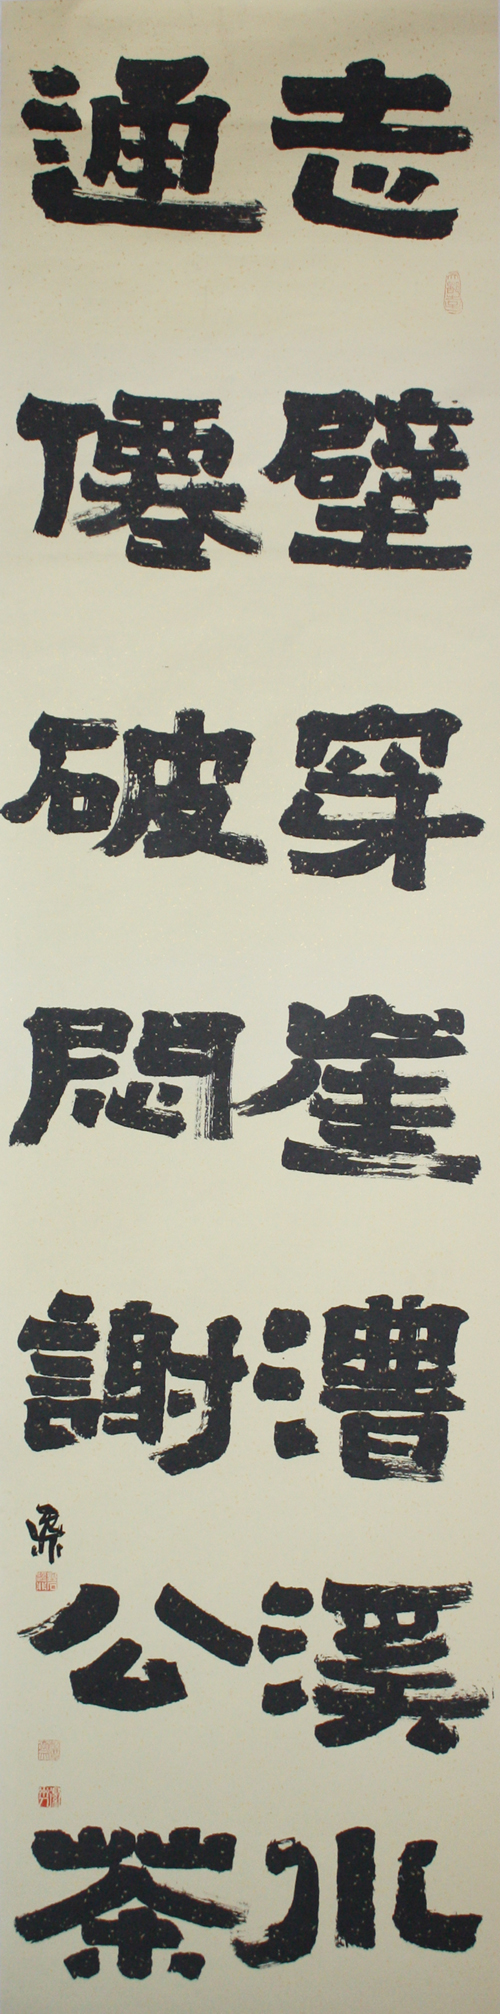 志壁穿崖漕溪水
通僊破悶謝公茶
鼎